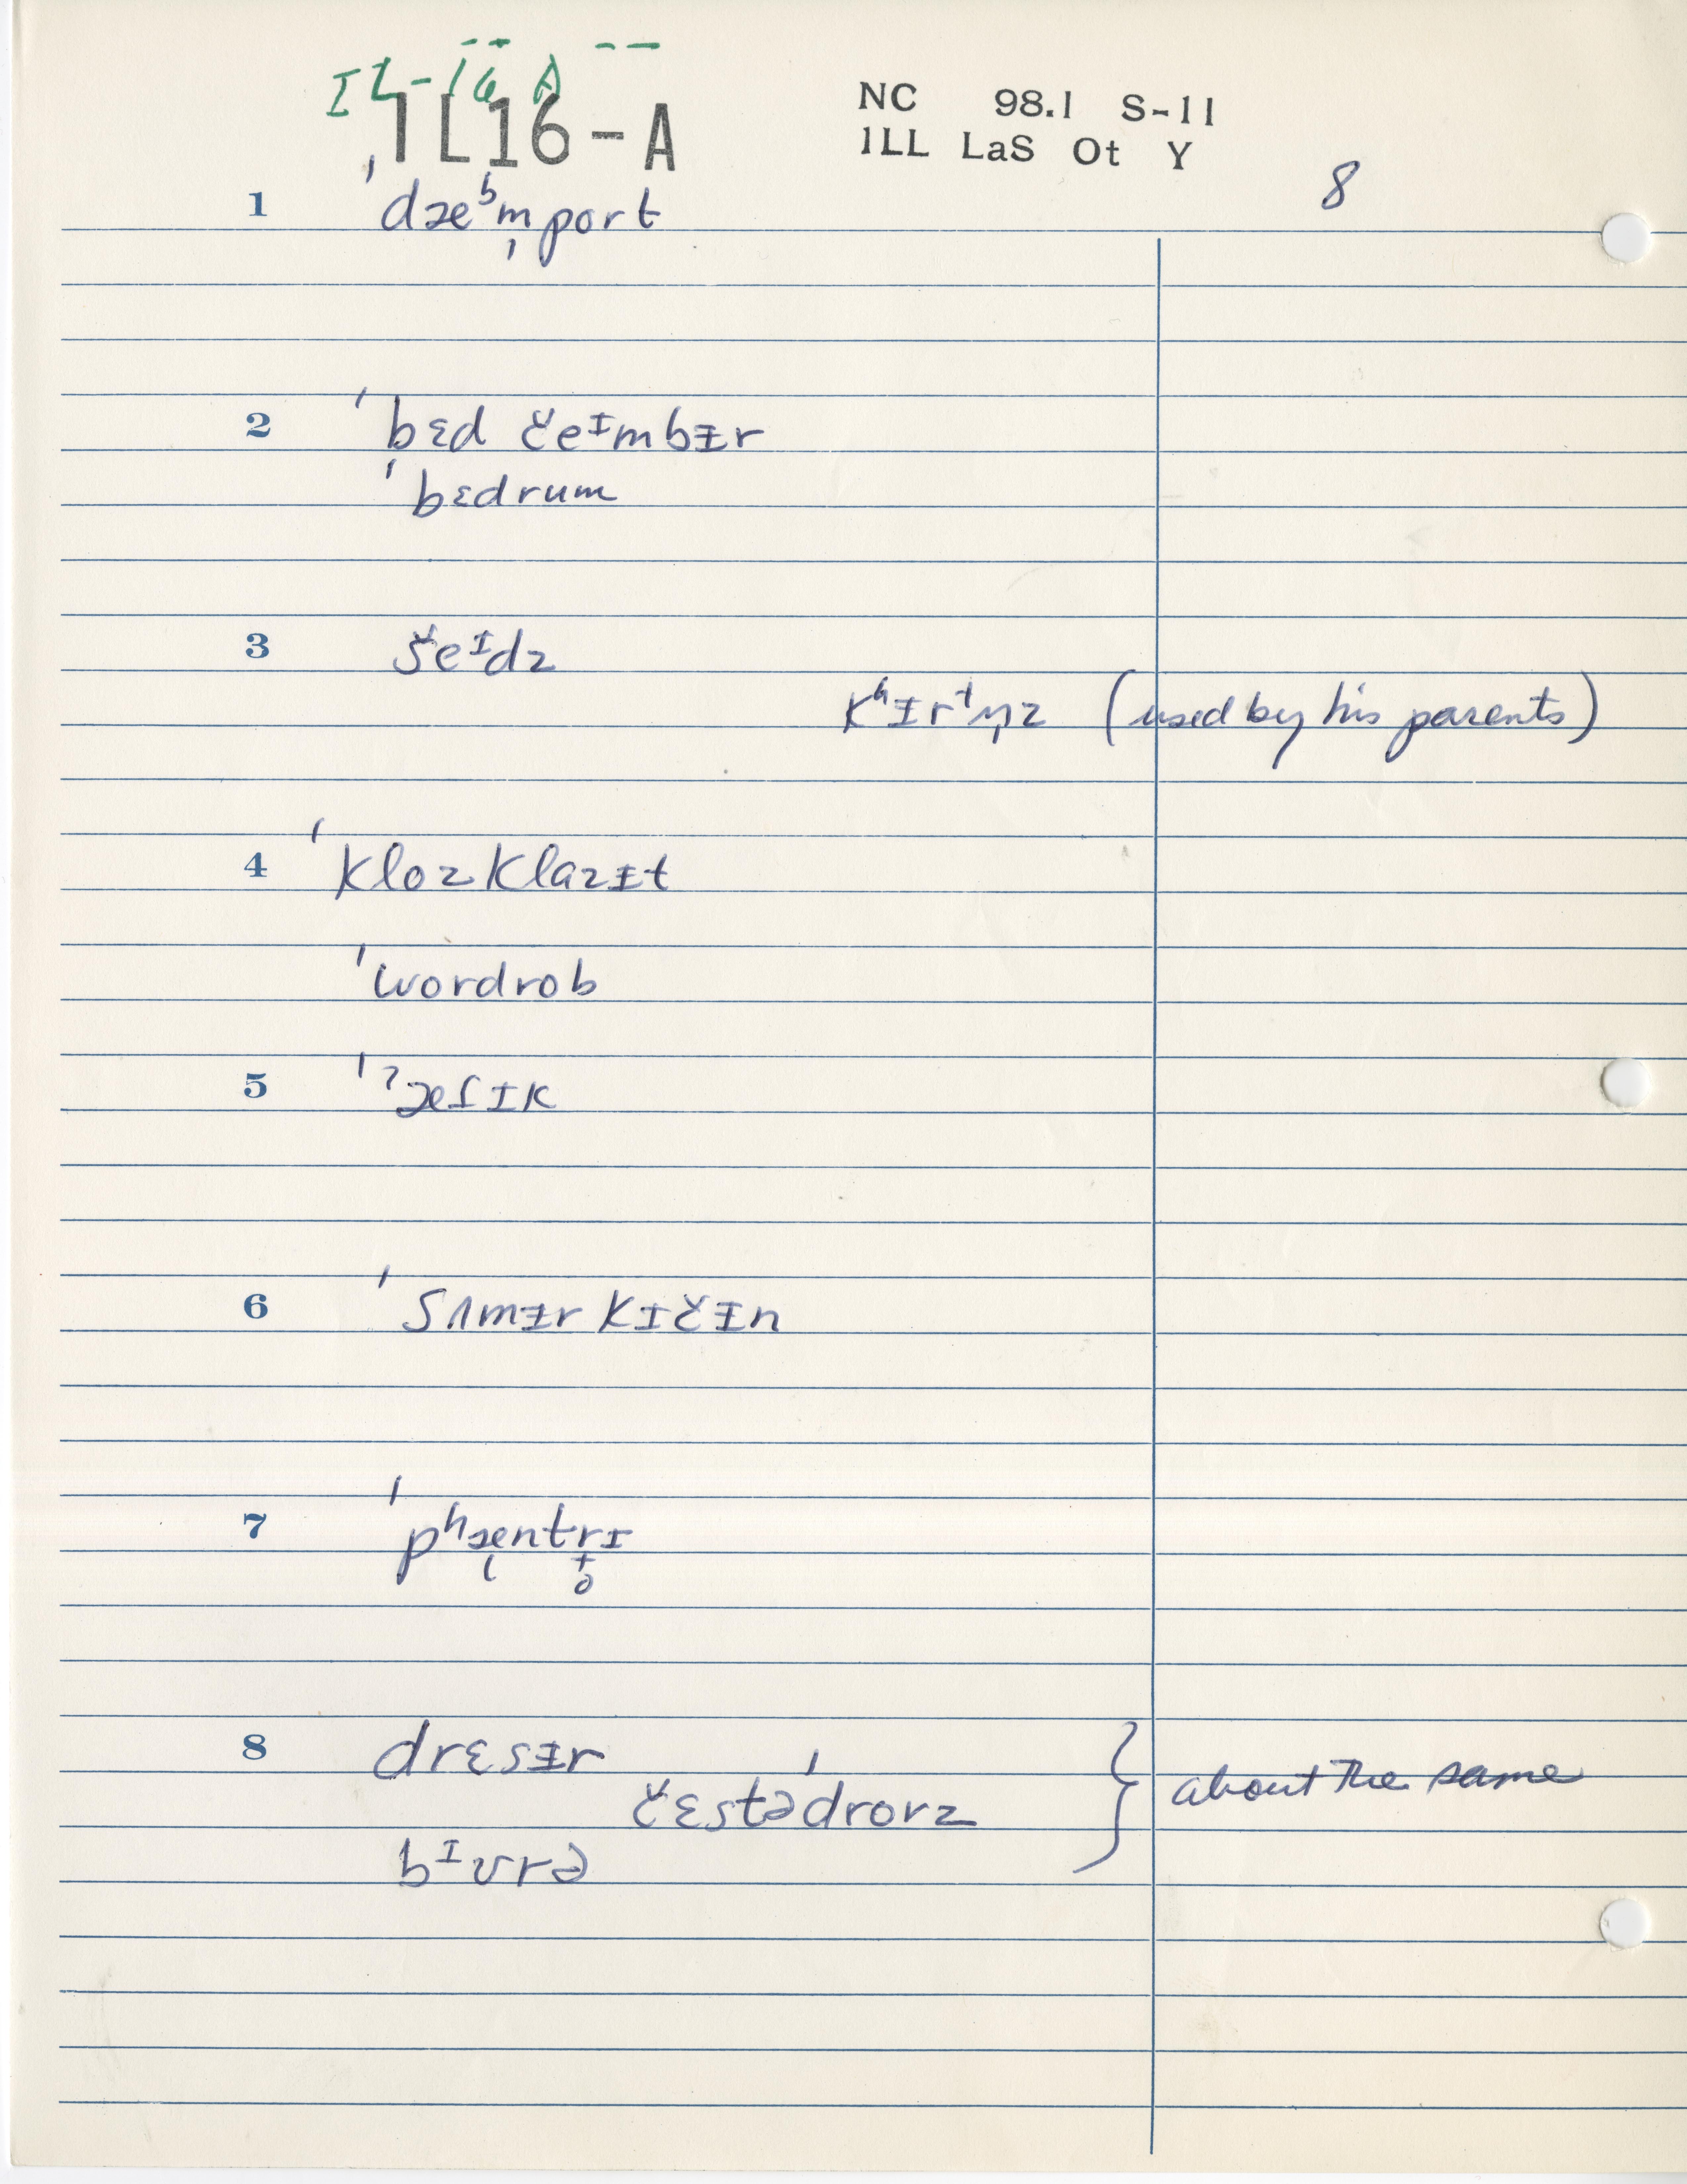 IL-16 A
1L16-A
NC 98.1 S-11
1LL LaS Ot Y
8
1 ˈdæᵇm̩port
2 ˈbɛd čeᴵmbᵻr
ˈbɛdrum
3 šeᴵdz
kʰᵻrᵗn̩z (used by his parents)
4 ˈklozklazᵻt
ˈwordrob
5 ˈˀæſɪk
6 ˈsʌmᵻr kɪčᵻn
7 ˈpʰæntrɪ
8 drɛsᵻr
čɛstəˈdrorz
bᴵʊrə
about the same